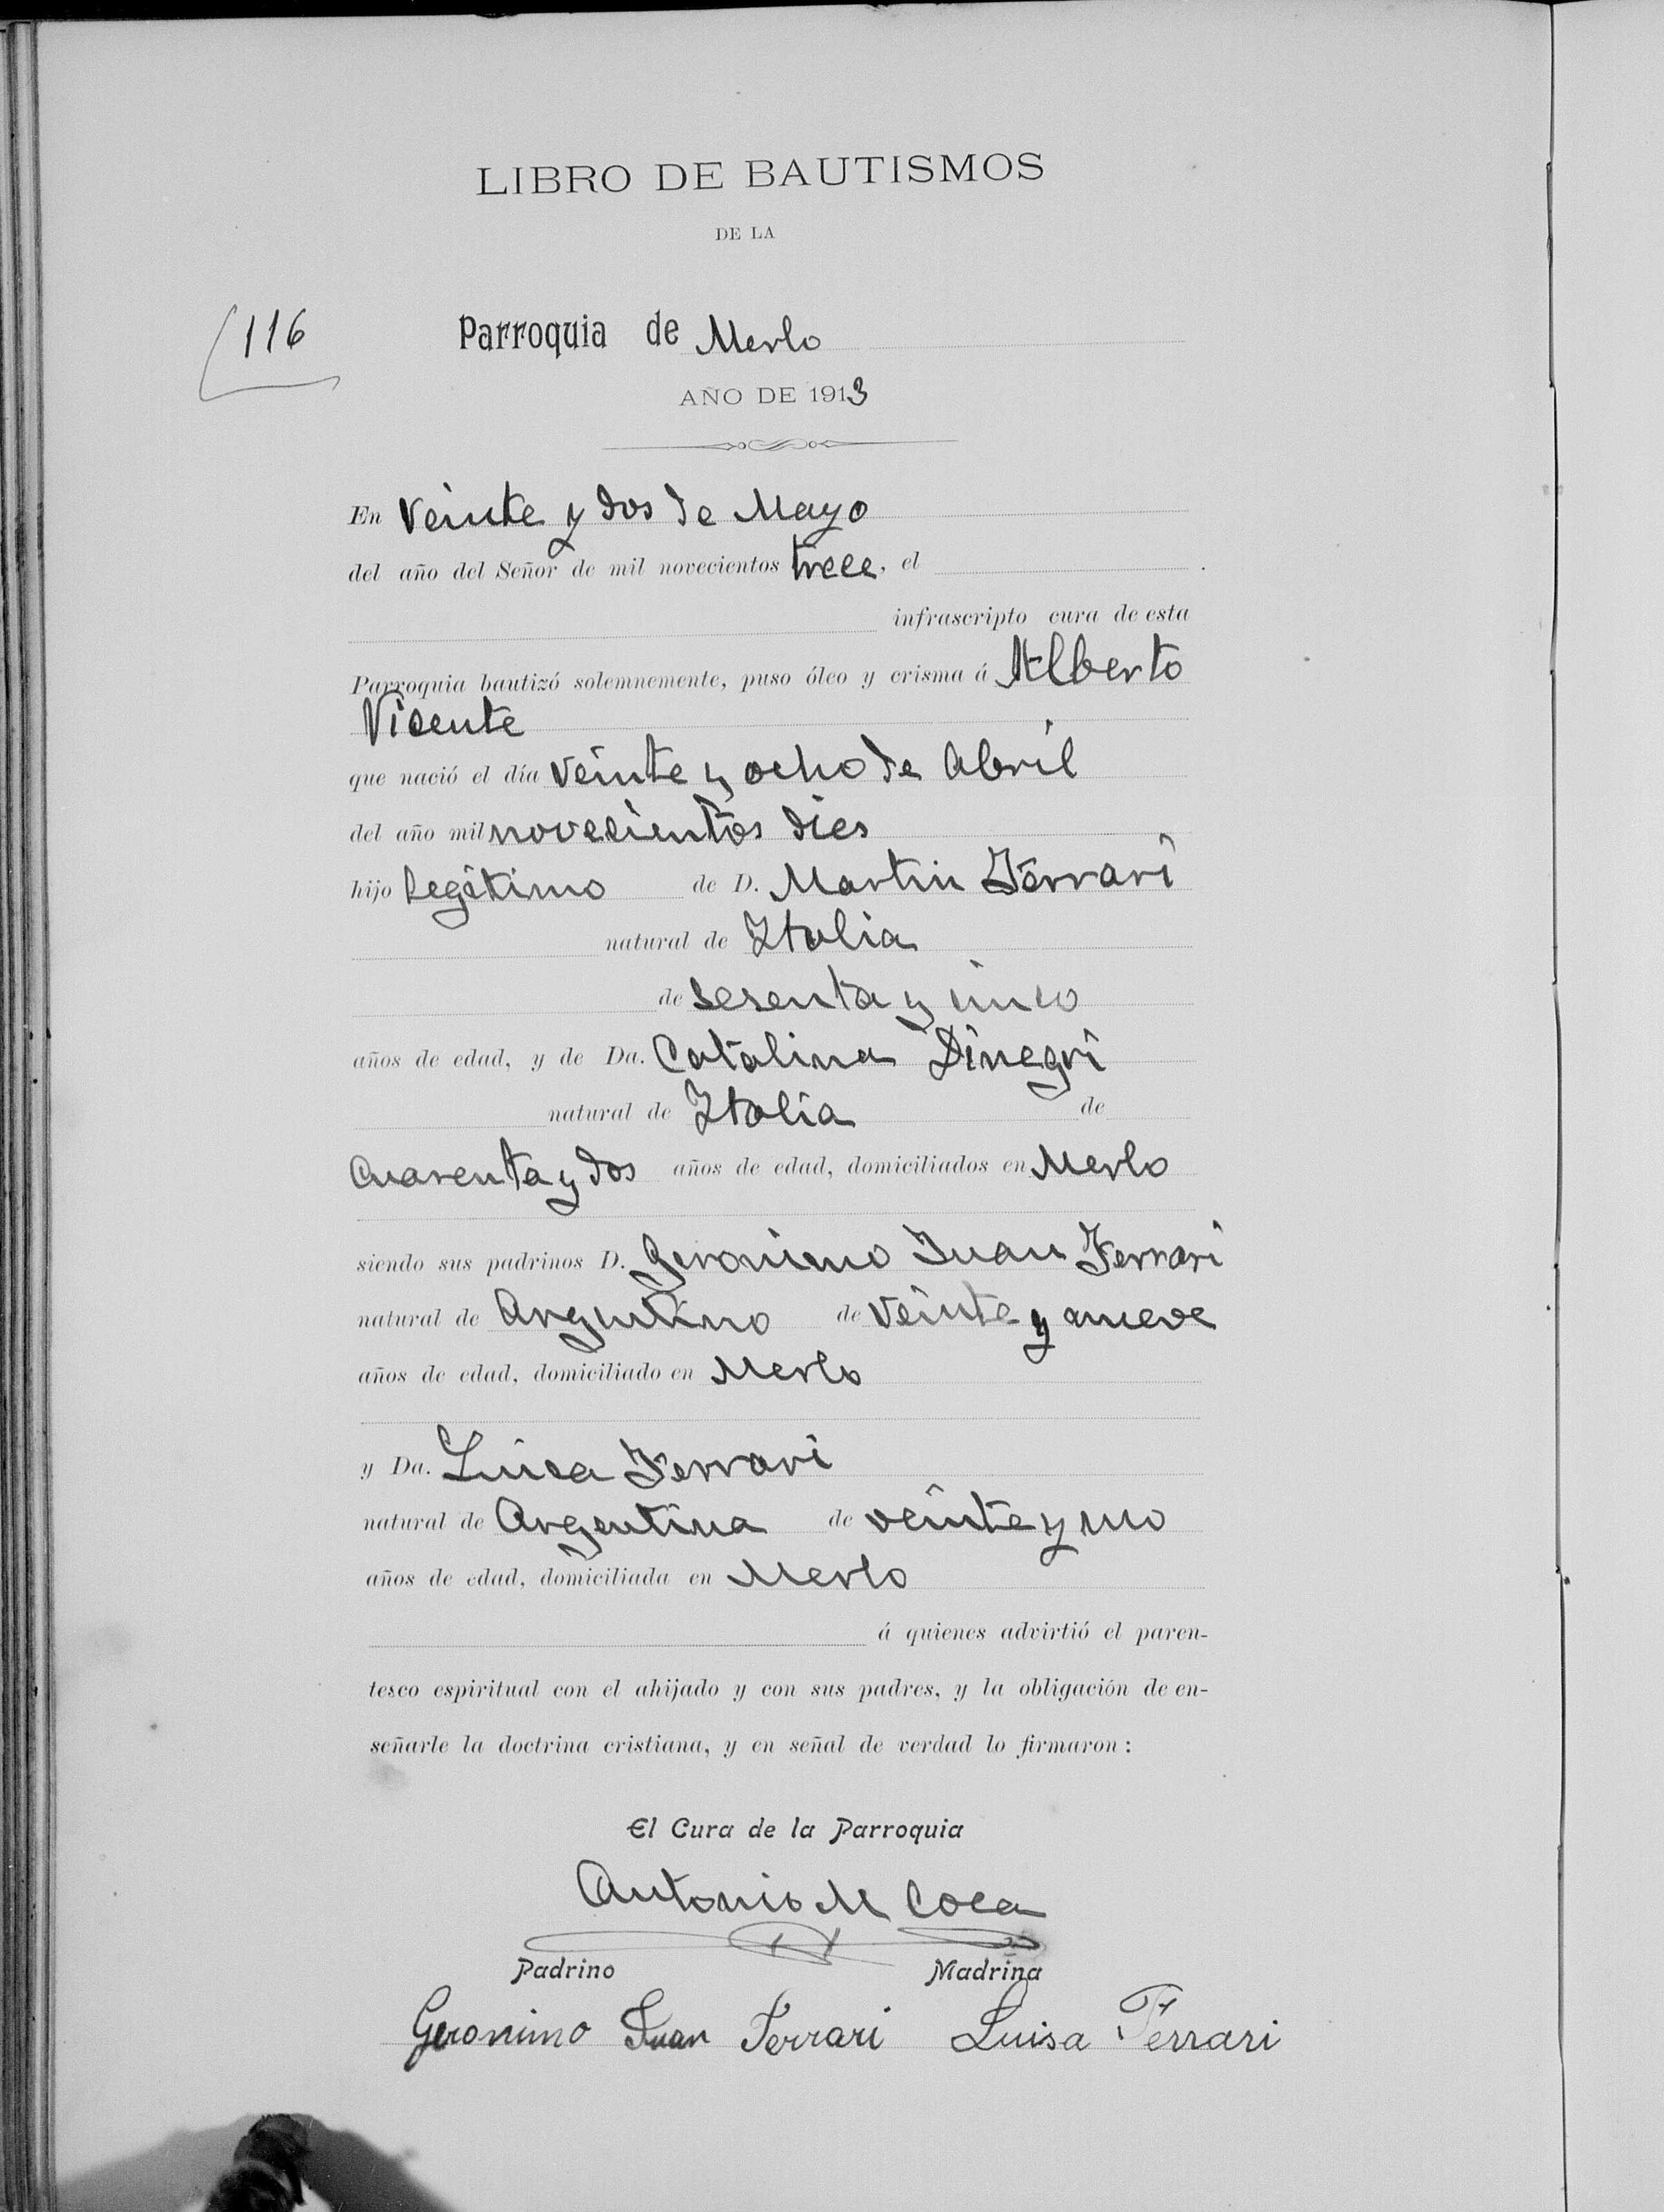 LIBRO DE BAUTISMOS
DE LA
116
Parroquia de Merlo
AÑO DE 1913
En Veinte y dos de Mayo
del año del Señor de mil novecientos trece, el
infrascripto cura de esta
Parroquia bautizó solemnemente, puso óleo y crisma á Alberto
Vicente
que nació el día veinte y ocho de Abril
del año mil novecientos dies
hijo legítimo de D. Martin Ferrari
natural de Italia
de sesenta y
años de edad, y de Da. Catalina Dinegri
natural de Italia de
Cuarenta y dos años de edad, domiciliados en Merlo
siendo sus padrinos D. Geronimo Juan Ferrari
natural de Argentino de veinte y nueve
años de edad, domiciliado en Merlo
y Da. Luisa Ferrari
natural de Argentina de veinte y uno
años de edad, domiciliada en Merlo
á quienes advirtió el paren-
tesco espiritual con el ahijado y con sus padres, y la obligación de en-
señarle la doctrina cristiana, y en señal de verdad lo firmaron:
El Cura de la Parroquia
Antonio M Coca
Padrino Madrina
Geronimo Juan Ferrari Luisa Ferrari